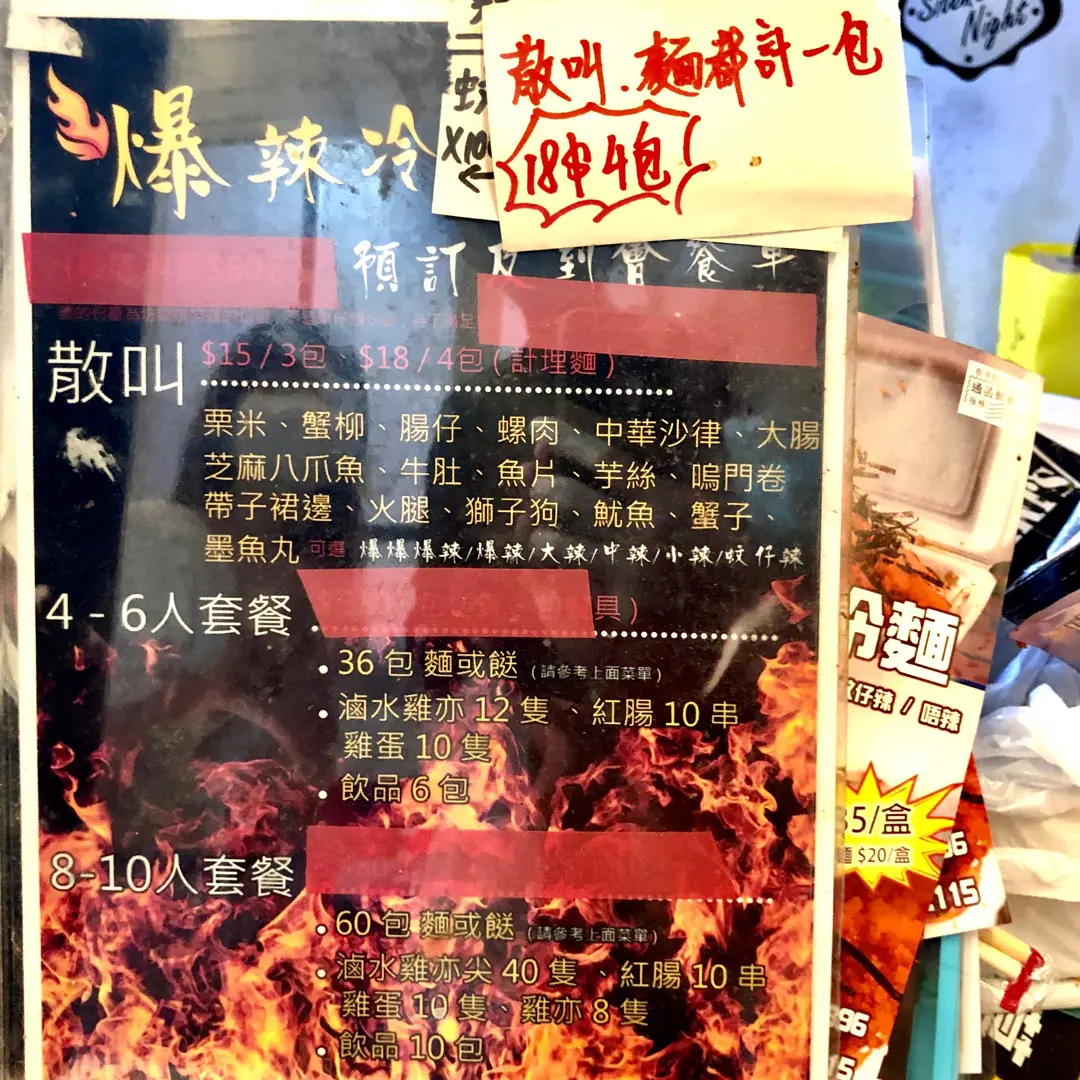 散叫.麵都計一包
18蚊4包
X10
Night
爆辣冷
預訂及到會餐單
散叫
$15 / 3包、$18 / 4包 ( 計埋麵 )
粟米、蟹柳、腸仔、螺肉、中華沙律、大腸
芝麻八爪魚、牛肚、魚片、芋絲、鳴門卷
帶子裙邊、火腿、獅子狗、魷魚、蟹子、
墨魚丸 可選 爆爆爆辣/爆辣/大辣/中辣/小辣/蚊仔辣
4 - 6人套餐
具 )
36 包 麵或餸 (請參考上面菜單)
滷水雞亦 12 隻 、紅腸 10 串
雞蛋 10 隻
飲品 6 包
8-10人套餐
60 包 麵或餸 (請參考上面菜單)
滷水雞亦尖 40 隻 、紅腸 10 串
雞蛋 10 隻、雞亦 8 隻
飲品 10 包
冷麵
蚊仔辣 / 唔辣
5/盒
$20/盒
115